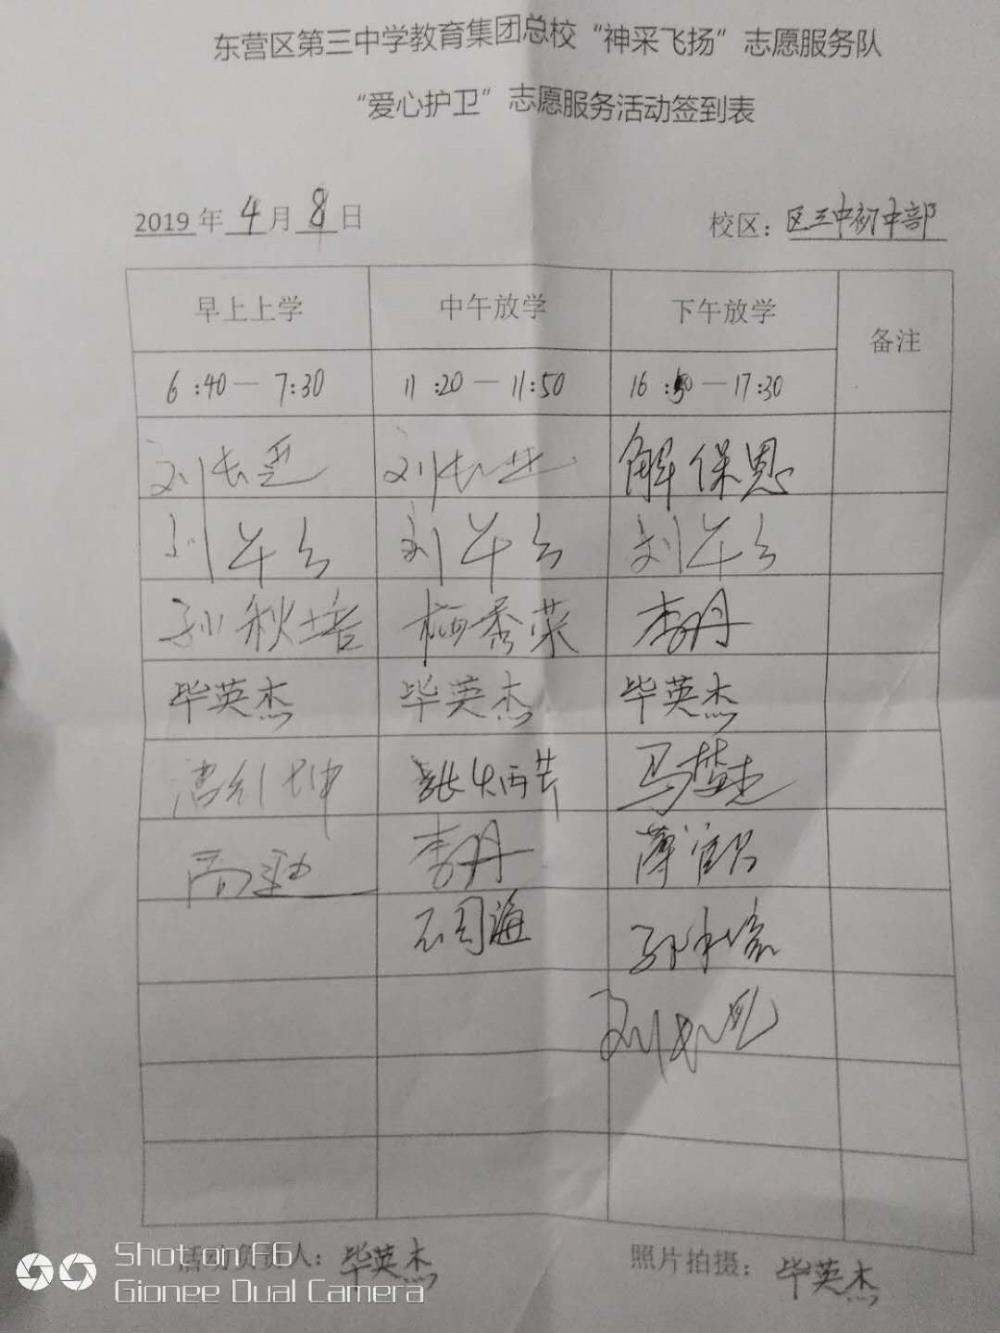 东营区第三中学教育集团总校“神采飞扬”志愿服务队
“爱心护卫”志愿服务活动签到表
2019年 4月 8日 校区：区三中初中部
早上上学 中午放学 下午放学 备注
6:40—7:30 11:20—11:50 16:50—17:30
刘长 刘长 解保恩
刘 刘 刘
孙秋培 梅秀荣 李丹
毕英杰 毕英杰 毕英杰
坤 张 马梦杰
李丹 薄
石国海
刘
活动负责人：毕英杰 照片拍摄：毕英杰
Shot on F6
Gionee Dual Camera